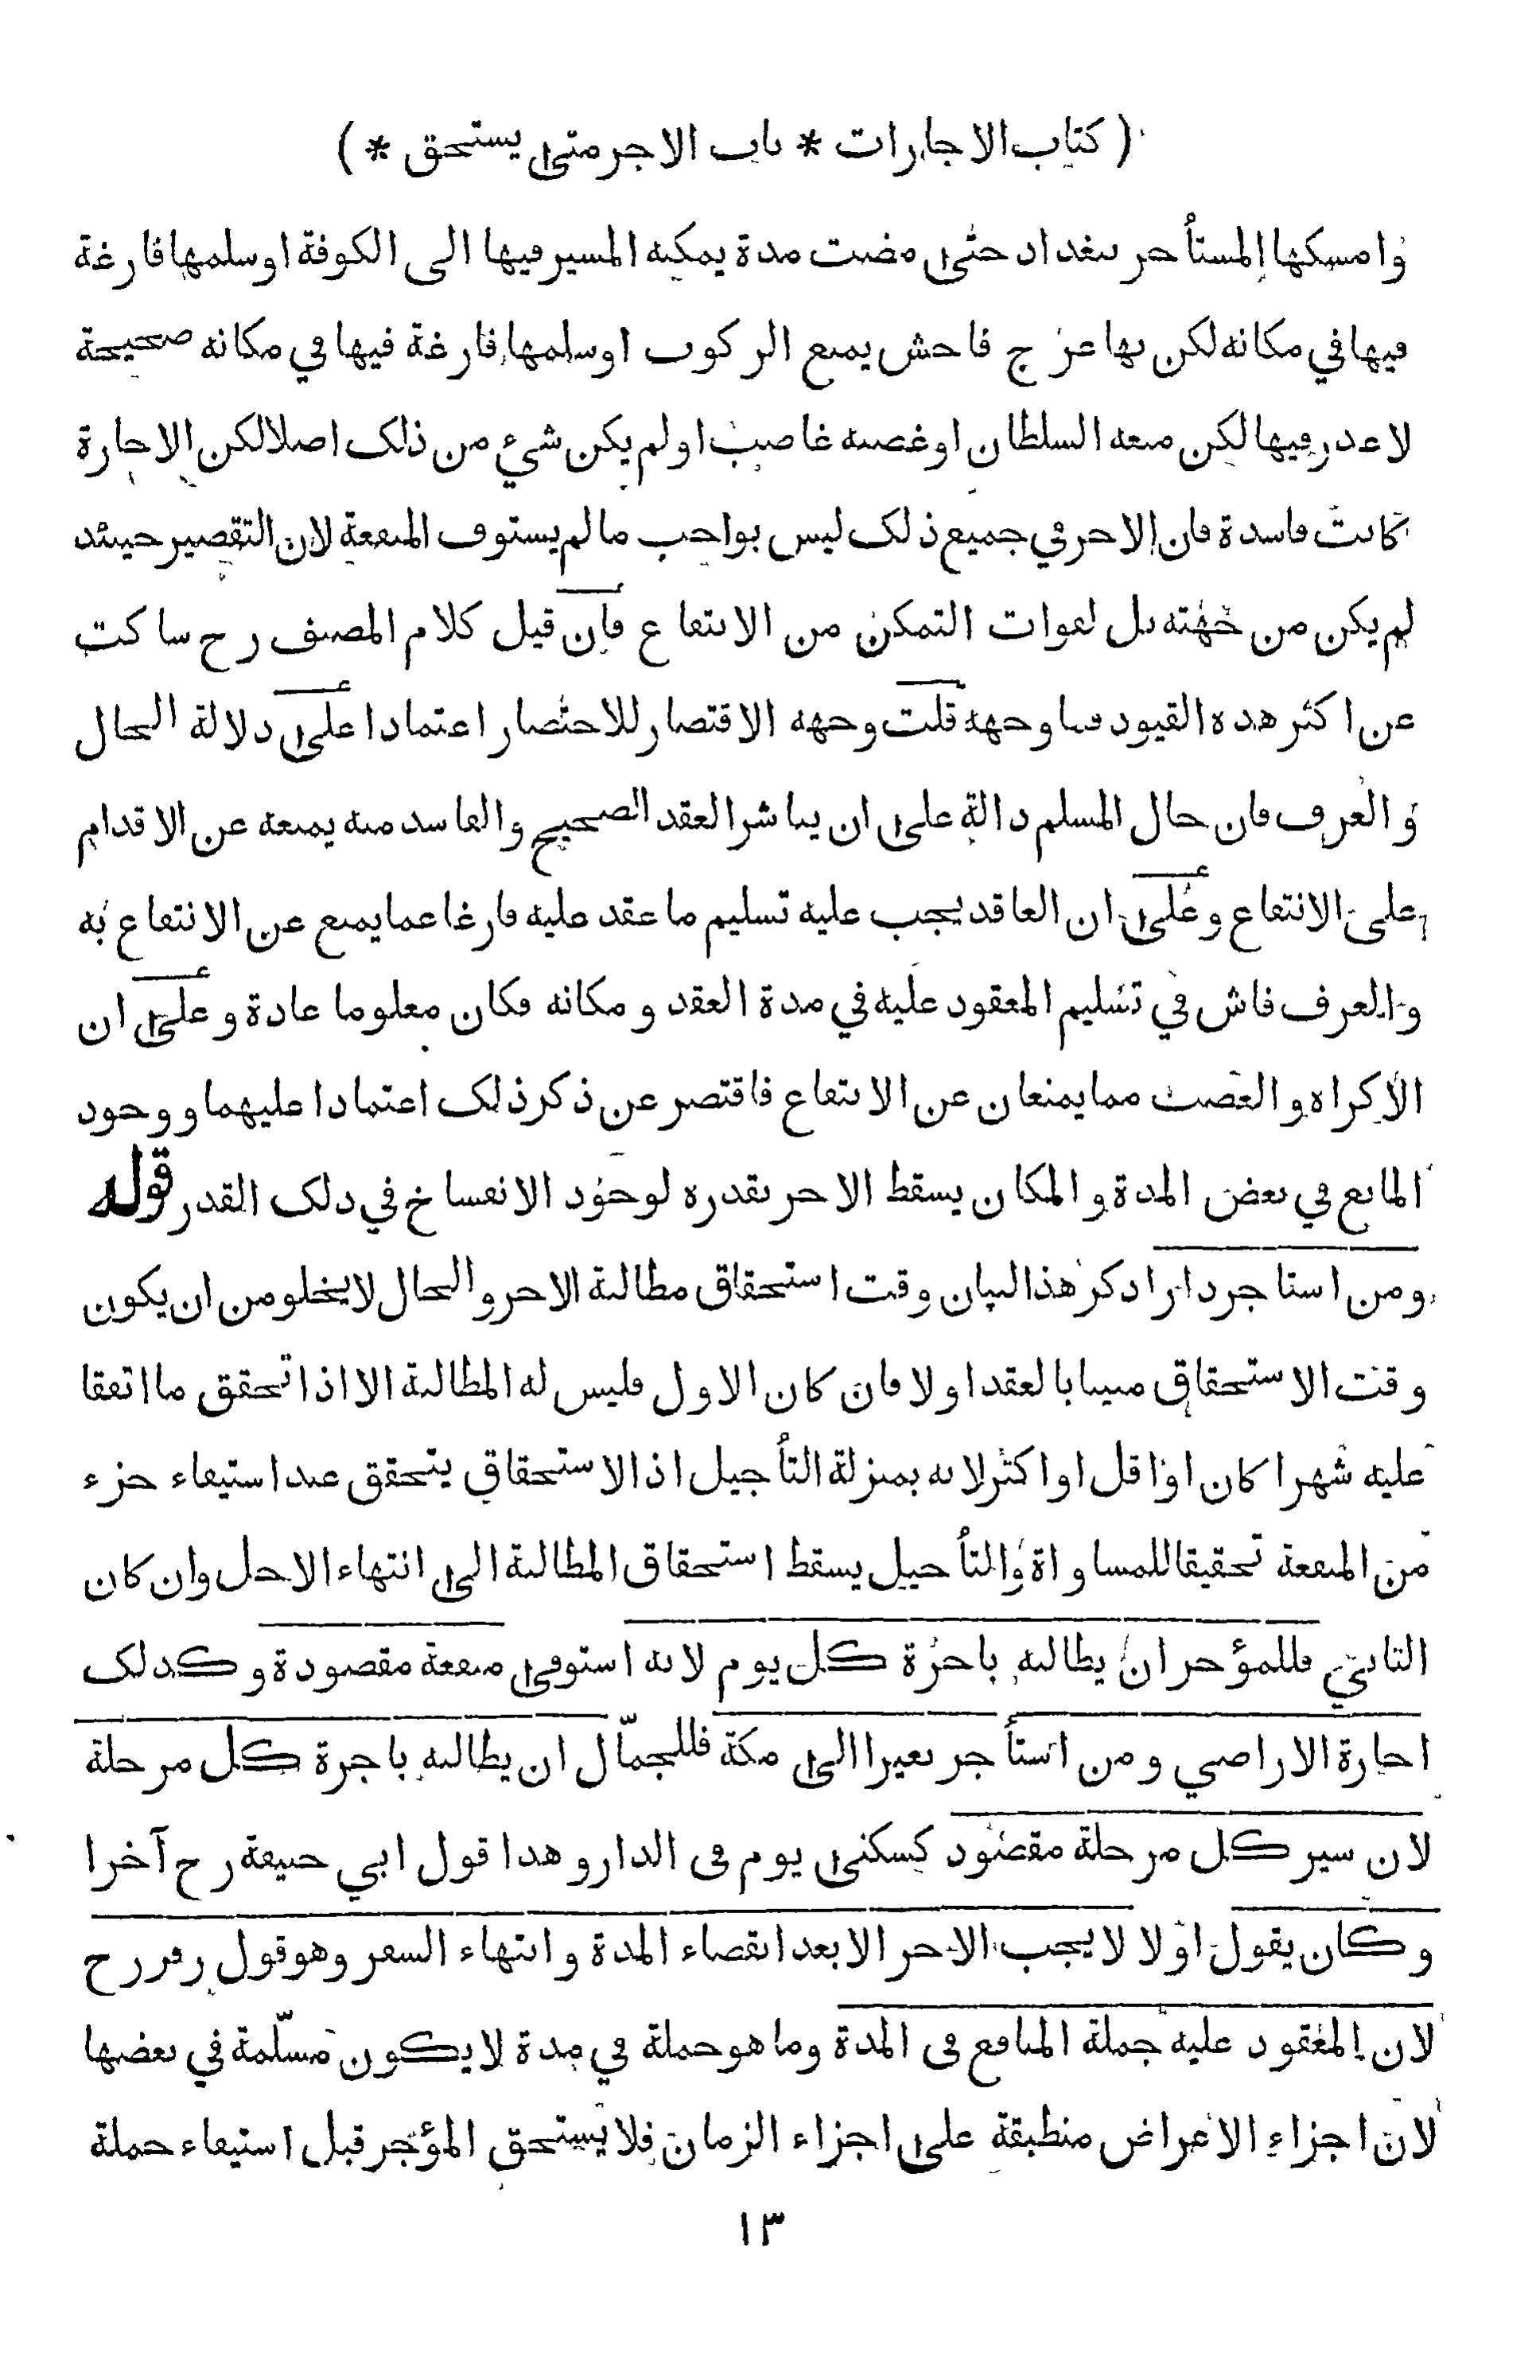 ( كتاب الاجارات * باب الاجر متى يستحق * )
وامسكها المستأجر ببغداد حتى مضت مدة يمكنه المسير فيها الى الكوفة او سلمها فارغة
فيها في مكانه لكن بها عرج فاحش يمنع الركوب او سلمها فارغة فيها في مكانه صحيحة
لا عذر فيها لكن منعه السلطان او غصبه غاصب او لم يكن شيء من ذلك اصلا لكن الاجارة
كانت فاسدة فان الاجر في جميع ذلك ليس بواجب ما لم يستوف المنفعة لان التقصير حينئذ
لم يكن من جهته بل لفوات التمكن من الانتفاع فان قيل كلام المصنف رح ساكت
عن اكثر هذه القيود فما وجهه قلت وجهه الاقتصار للاختصار اعتمادا على دلالة الحال
والعرف فان حال المسلم دالة على ان يباشر العقد الصحيح والفاسد منه يمنعه عن الاقدام
على الانتفاع وعلى ان العاقد يجب عليه تسليم ما عقد عليه فارغا عما يمنع عن الانتفاع به
والعرف فاش في تسليم المعقود عليه في مدة العقد و مكانه فكان معلوما عادة وعلى ان
الاكراه والغصب مما يمنعان عن الانتفاع فاقتصر عن ذكر ذلك اعتمادا عليهما ووجود
المانع في بعض المدة والمكان يسقط الاجر بقدره لوجود الانفساخ في ذلك القدر قوله
ومن استاجر دارا ذكر هذا لبيان وقت استحقاق مطالبة الاجر والحال لا يخلو من ان يكون
وقت الاستحقاق مبينا بالعقد اولا فان كان الاول فليس له المطالبة الا اذا تحقق ما اتفقا
عليه شهرا كان او اقل او اكثر لانه بمنزلة التأجيل اذ الاستحقاق يتحقق عند استيفاء جزء
من المنفعة تحقيقا للمساواة والتأجيل يسقط استحقاق المطالبة الى انتهاء الاجل وان كان
الثاني فللمؤجر ان يطالبه باجرة كل يوم لانه استوفى منفعة مقصودة وكذلك
اجارة الاراضي ومن استأجر بعيرا الى مكة فللجمّال ان يطالبه باجرة كل مرحلة
لان سير كل مرحلة مقصود كسكنى يوم فى الدار وهذا قول ابي حنيفة رح آخرا
وكان يقول اولا لا يجب الاجر الا بعد انقضاء المدة وانتهاء السفر وهو قول زفر رح
لان المعقود عليه جملة المنافع فى المدة وما هو جملة في مدة لا يكون مسلّمة في بعضها
لان اجزاء الاعراض منطبقة على اجزاء الزمان فلا يستحق المؤجر قبل استيفاء جملة
١٣